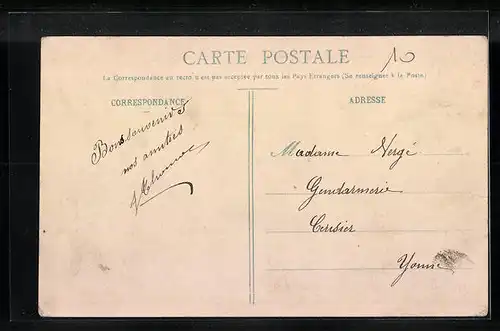 CARTE POSTALE
10
La Correspondance au recto n'est pas acceptée par tous les Pays Etrangers (Se renseigner à la Poste)
CORRESPONDANCE
ADRESSE
Bons souvenirs
nos amitiés
Madame Vergé
Gendarmerie
Cerisier
Yonne